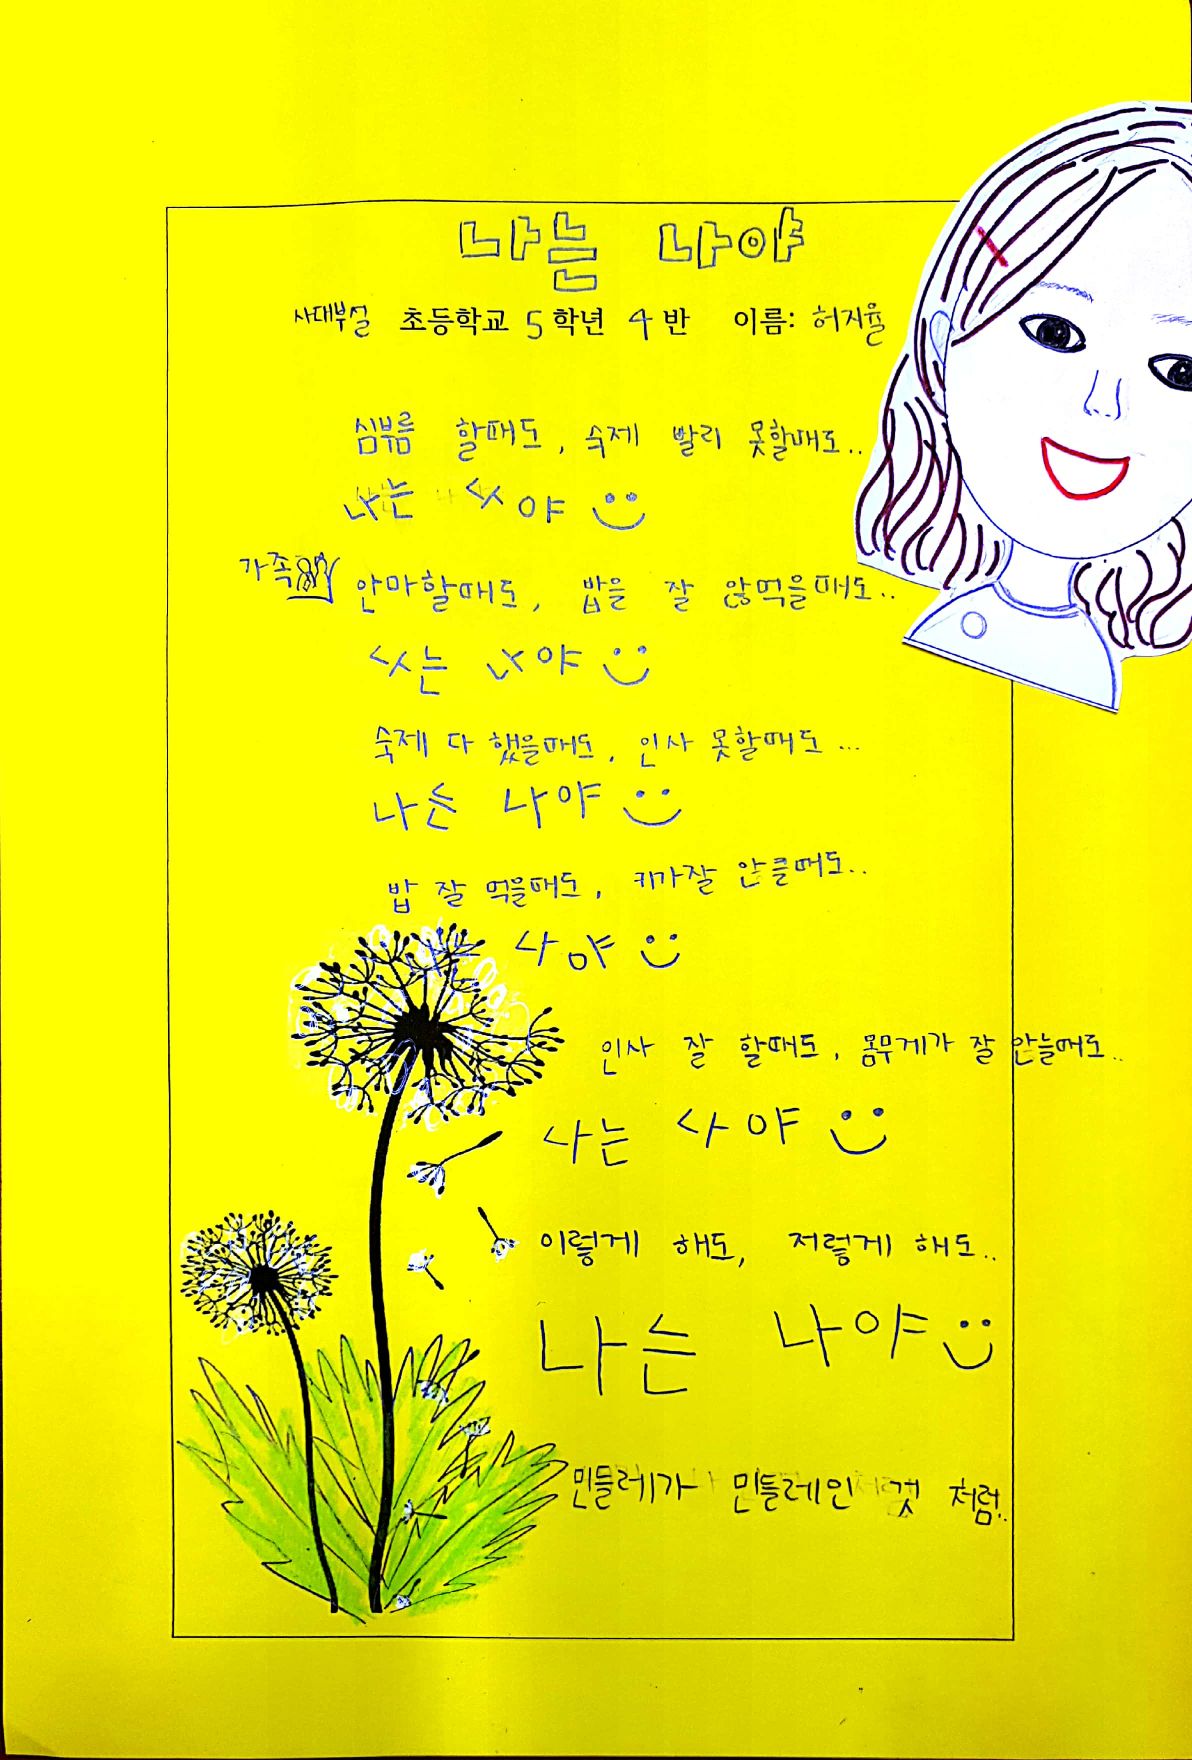 나는 나야
사대부설 초등학교 5학년 4반 이름: 허지율
심부름 할때도, 숙제 빨리 못할때도..
나는 나야
가족 안마할때도, 밥을 잘 않먹을때도..
나는 나야
숙제 다 했을때도, 인사 못할때도...
나는 나야
밥 잘 먹을때도, 키가잘 안클때도..
나야
인사 잘 할때도, 몸무게가 잘 안늘때도..
나는 나야
이렇게 해도, 저렇게 해도..
나는 나야
민들레가 민들레인 것 처럼..